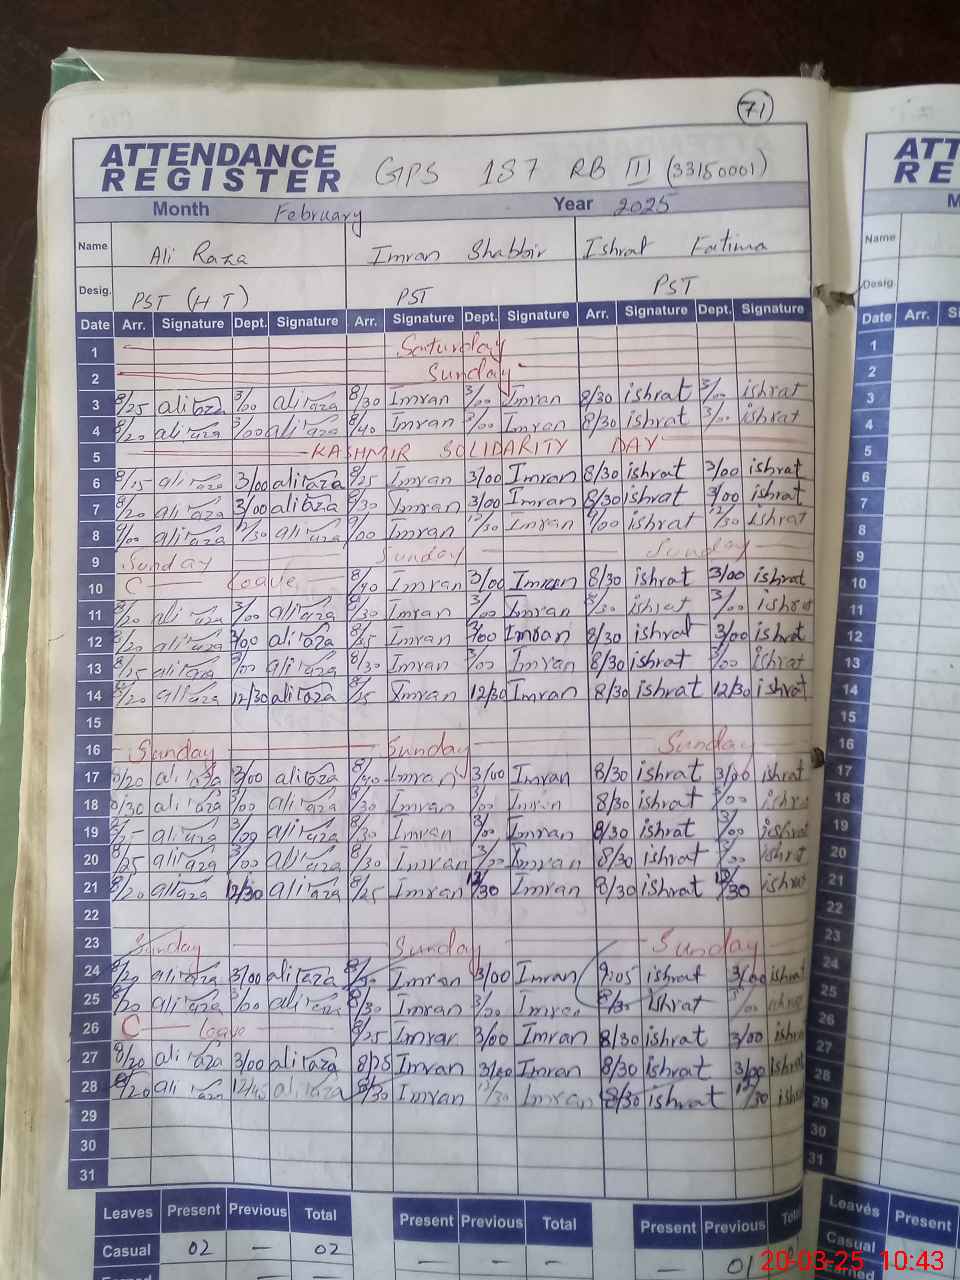 71
ATTENDANCE
REGISTER GPS 187 RB III (33150001)
Month February Year 2025
Name Ali Raza Imran Shabbir Ishrat Fatima
Desig. PST (HT) PST PST
Date Arr. Signature Dept. Signature Arr. Signature Dept. Signature Arr. Signature Dept. Signature
1 Saturday
2 Sunday
3 8/25 aliraza 3/00 aliraza 8/30 Imran 3/00 Imran 8/30 ishrat 3/00 ishrat
4 8/20 aliraza 3/00 aliraza 8/40 Imran 3/00 Imran 8/30 ishrat 3/00 ishrat
5 KASHMIR SOLIDARITY DAY
6 8/15 aliraza 3/00 aliraza 8/25 Imran 3/00 Imran 8/30 ishrat 3/00 ishrat
7 8/20 aliraza 3/00 aliraza 8/30 Imran 3/00 Imran 8/30 ishrat 3/00 ishrat
8 9/00 aliraza 12/30 aliraza 9/00 Imran 12/30 Imran 9/00 ishrat 12/30 ishrat
9 Sunday Sunday Sunday
10 C leave 8/40 Imran 3/00 Imran 8/30 ishrat 3/00 ishrat
11 8/20 aliraza 3/00 aliraza 8/30 Imran 3/00 Imran 8/30 ishrat 3/00 ishrat
12 8/20 aliraza 3/00 aliraza Imran 3/00 Imran 8/30 ishrat 3/00 ishrat
13 8/15 aliraza 3/00 aliraza 8/30 Imran 3/00 Imran 8/30 ishrat 3/00 ishrat
14 8/20 aliraza 12/30 aliraza 8/25 Imran 12/30 Imran 8/30 ishrat 12/30 ishrat
15
16 Sunday Sunday Sunday
17 8/20 aliraza 3/00 aliraza 8/40 Imran 3/00 Imran 8/30 ishrat 3/00 ishrat
18 8/30 aliraza 3/00 aliraza 8/30 Imran 3/00 Imran 8/30 ishrat 3/00 ishrat
19 aliraza 3/00 aliraza 8/30 Imran 3/00 Imran 8/30 ishrat 3/00 ishrat
20 8/25 aliraza 3/00 aliraza 8/30 Imran 3/00 Imran 8/30 ishrat 3/00 ishrat
21 8/20 aliraza 12/30 aliraza 8/25 Imran 12/30 Imran 8/30 ishrat 12/30 ishrat
22
23 Sunday Sunday Sunday
24 8/20 aliraza 3/00 aliraza Imran 3/00 Imran 9:05 ishrat 3/00 ishrat
25 8/20 aliraza 3/00 aliraza 8/30 Imran 3/00 Imran 8/30 ishrat 3/00 ishrat
26 C leave 8/25 Imran 3/00 Imran 8/30 ishrat 3/00 ishrat
27 8/20 aliraza 3/00 aliraza 8/25 Imran 3/00 Imran 8/30 ishrat 3/00 ishrat
28 8/20 aliraza 12/45 aliraza 8/30 Imran 12/30 Imran 8/30 ishrat 12/30 ishrat
29
30
31
Leaves Present Previous Total Present Previous Total Present Previous Total
Casual 02 — 02 — — — — 01
ATT
RE
M
Name
Desig.
Date Arr. Si
1
2
3
4
5
6
7
8
9
10
11
12
13
14
15
16
17
18
19
20
21
22
23
24
25
26
27
28
29
30
31
Leaves Present
Casual
20-03-25 10:43